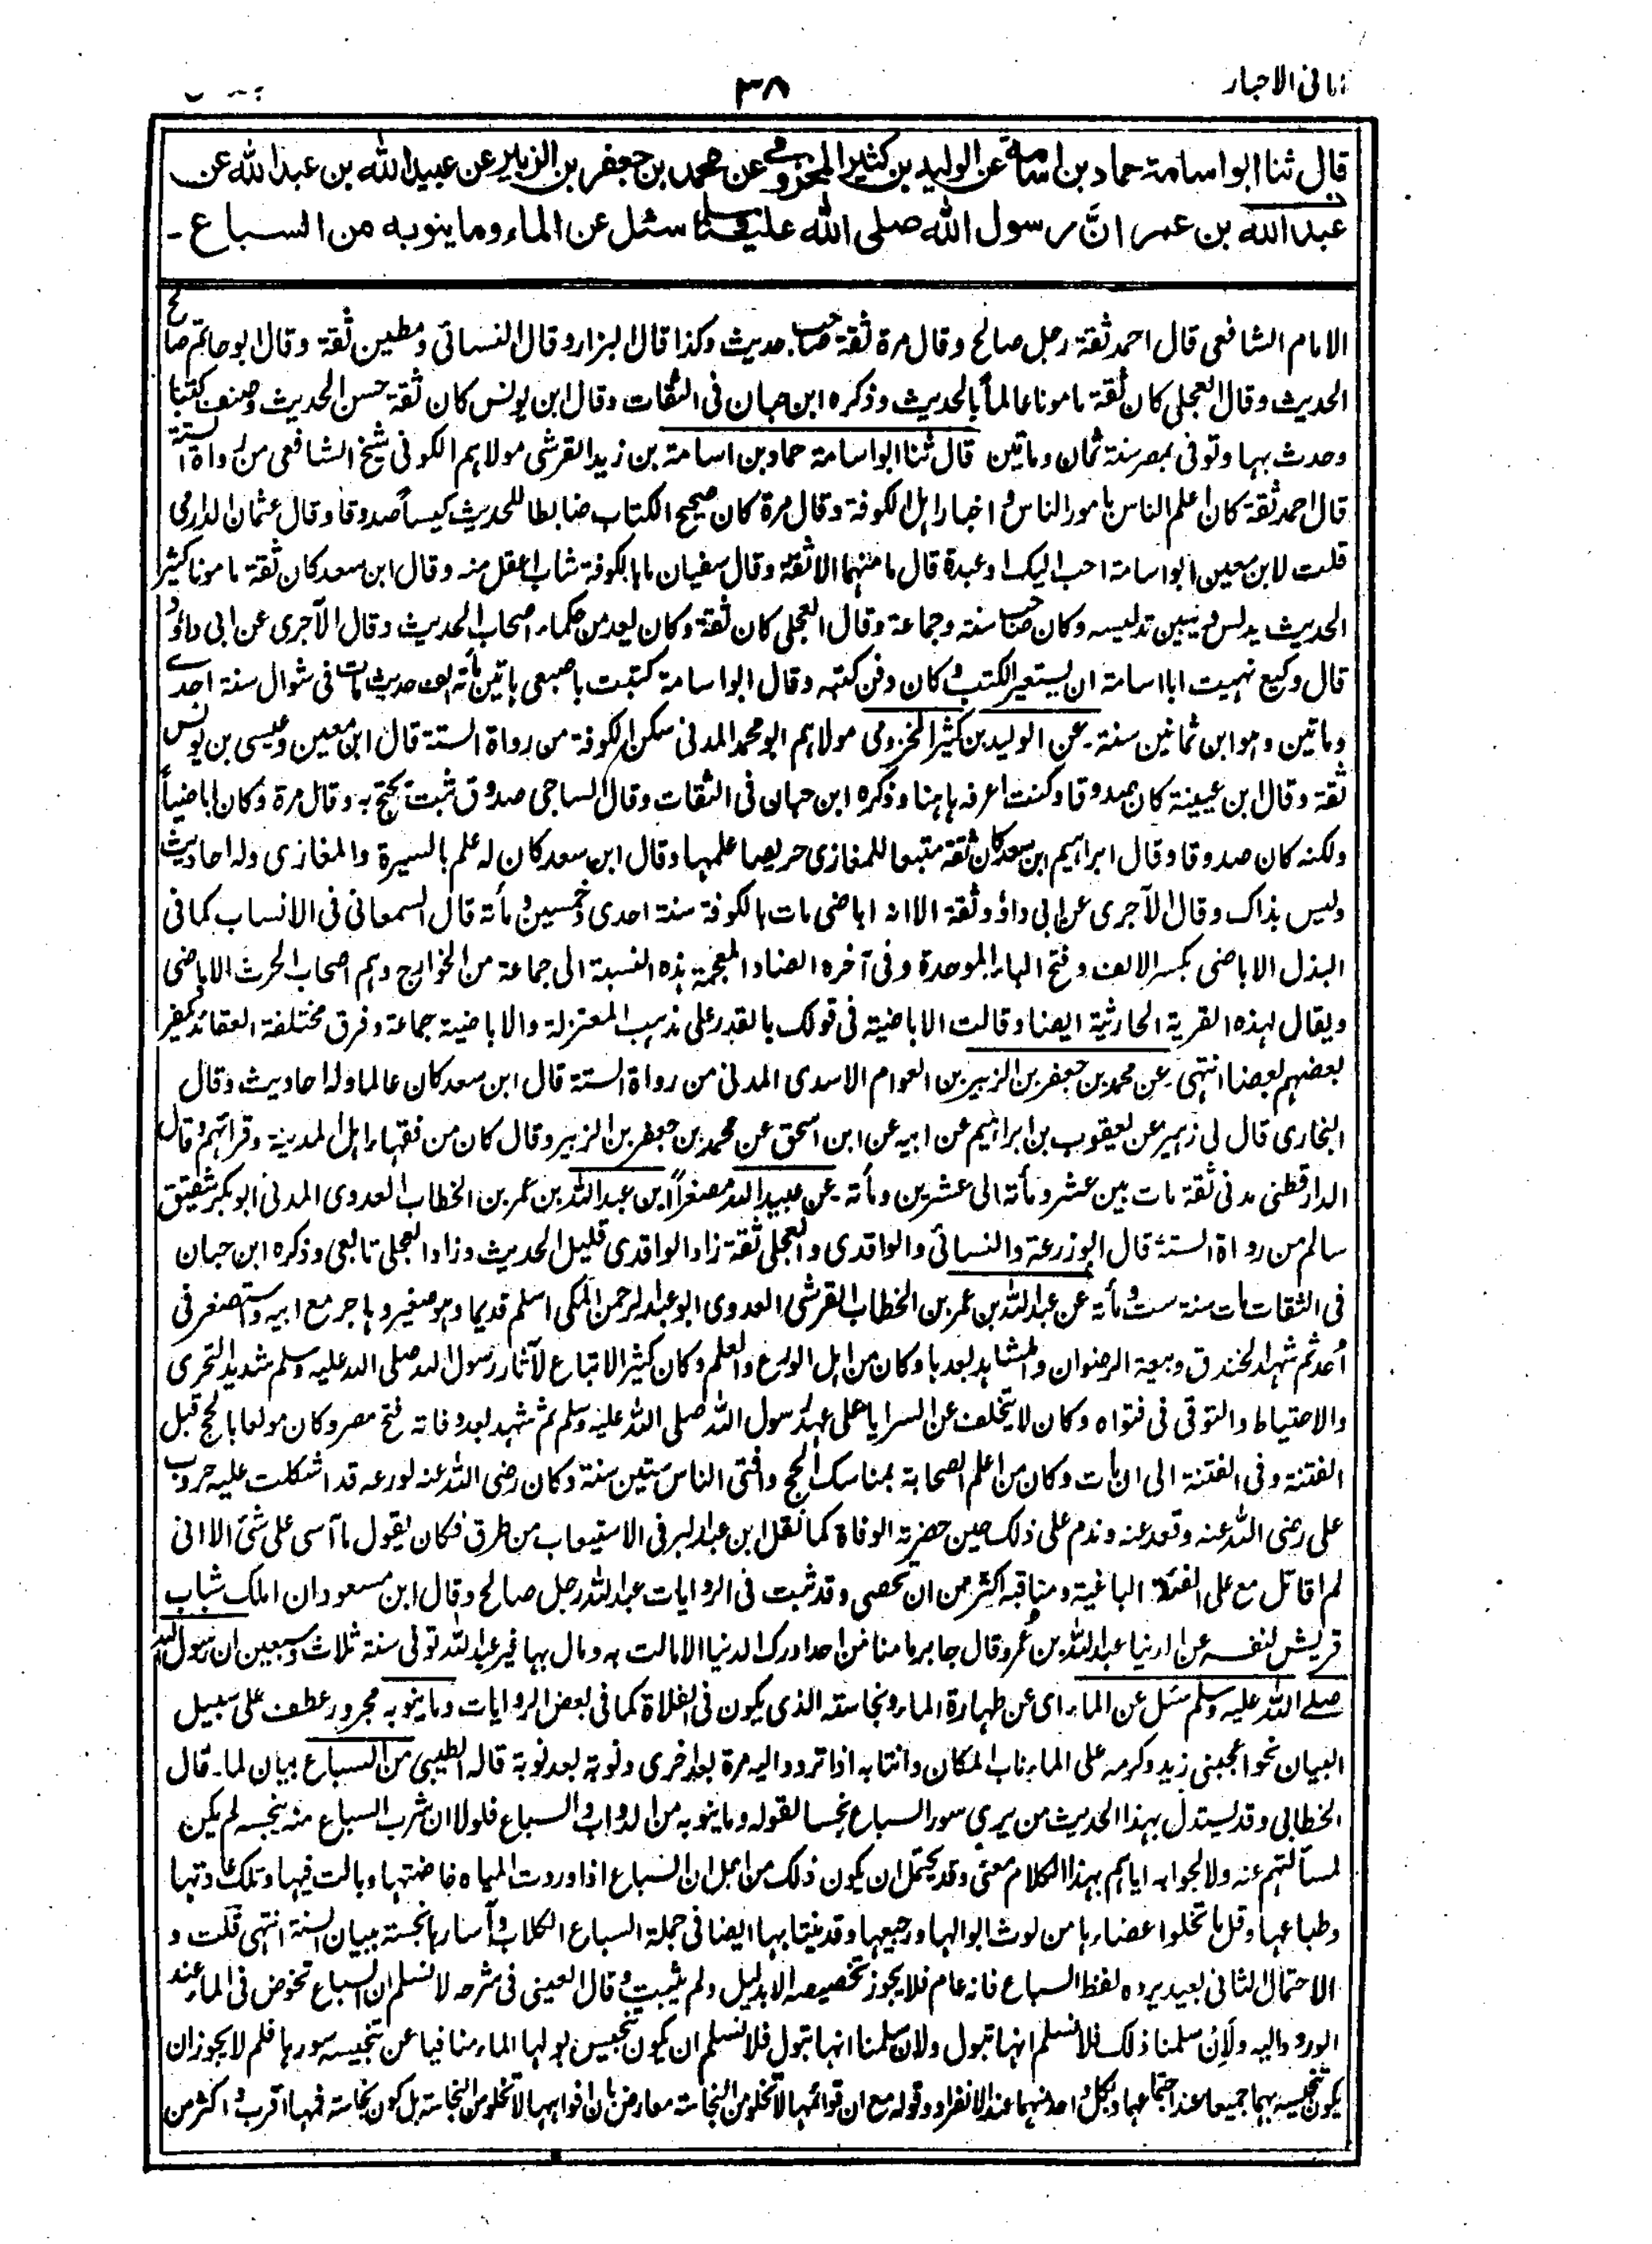 امانی الاحبار
۳۸
قال ثنا ابو اسامة حماد بن اسامة عن الولید بن کثیر المخزومی عن محمد بن جعفر بن الزبیر عن عبید الله بن عبد الله عن
عبد الله بن عمر انَّ رسول الله صلی الله علیه وسلم سئل عن الماء وما ینوبه من السباع -
الامام الشافعی قال احمد ثقة رجل صالح وقال مرة ثقة صاحب حدیث وکذا قال البزار وقال النسائی ومطین ثقة وقال ابو حاتم صالح
الحدیث وقال العجلی کان ثقة مامونا عالماً بالحدیث وذکره ابن حبان فی الثقات وقال ابن یونس کان ثقة حسن الحدیث وصنف کتبا
وحدث بها وتوفی بمصر سنة ثمان وماتین قال ثنا ابو اسامة حماد بن اسامة بن زید القرشی مولاهم الکوفی شیخ الشافعی من رواة الستة
قال احمد ثقة کان اعلم الناس بامور الناس واخبار اهل الکوفة وقال مرة کان صحیح الکتاب ضابطا للحدیث کیساً صدوقا وقال عثمان الدارمی
قلت لابن معین ابو اسامة احب الیک او عبدة قال ما منهما الا ثقة وقال سفیان ما بالکوفة شاب اعقل منه وقال ابن سعد کان ثقة مامونا کثیر
الحدیث یدلس ویبین تدلیسه وکان صاحب سنة وجماعة وقال العجلی کان ثقة وکان یعد من حکماء اصحاب الحدیث وقال الآجری عن ابی داؤد
قال وکیع نهیت ابا اسامة ان یستعیر الکتب وکان دفن کتبه وقال ابو اسامة کتبت باصبعی هاتین مأته الف حدیث مات فی شوال سنة احدے
وماتین وهو ابن ثمانین سنة۔ عن الولید بن کثیر المخزومی مولاهم ابو محمد المدنی سکن الکوفة من رواة الستة قال ابن معین وعیسی بن یونس
ثقة وقال ابن عیینة کان صدوقا وکنت اعرفه ههنا وذکره ابن حبان فی الثقات وقال الساجی صدوق ثبت یحتج به وقال مرة وکان اباضیاً
ولکنه کان صدوقا وقال ابراهیم ابن سعد کان ثقة متبعا للمغازی حریصا علمها وقال ابن سعد کان له علم بالسیرة والمغازی وله احادیث
ولیس بذاک وقال الآجری عن ابی داؤد ثقة الا انه اباضی مات بالکوفة سنة احدی وخمسین ومأته قال السمعانی فی الانساب کما فی
البذل الاباضی بکسر الالف وفتح الباء الموحدة وفی آخره الضاد المعجمة هذه النسبة الی جماعة من الخوارج وهم اصحاب الحرث الاباضی
ویقال لهذه القریة الحارثیة ایضا وقالت الاباضیة فی قولک بالقدر علی مذهب المعتزلة والاباضیة جماعة وفرق مختلفة العقائد یکفر
بعضهم بعضا انتهی۔ عن محمد بن جعفر بن الزبیر بن العوام الاسدی المدنی من رواة الستة قال ابن سعد کان عالما وله احادیث وقال
البخاری قال لی زهیر عن یعقوب بن ابراهیم عن ابیه عن ابن اسحق عن محمد بن جعفر بن الزبیر وقال کان من فقهاء اهل المدینة وقرائهم وقال
الدارقطنی مدنی ثقة مات بین عشر ومأته الی عشرین ومأته۔ عن عبید الله مصغراً ابن عبد الله بن عمر بن الخطاب العدوی المدنی ابو بکر شقیق
سالم من رواة الستة قال ابو زرعة والنسائی والواقدی والعجلی ثقة زاد الواقدی قلیل الحدیث وزاد العجلی تابعی وذکره ابن حبان
فی الثقات مات سنة ست ومأته عن عبد الله بن عمر بن الخطاب القرشی العدوی ابو عبد الرحمن المکی اسلم قدیما وهو صغیر وهاجر مع ابیه واستصغر فی
اُحد ثم شهد الخندق وبیعة الرضوان والمشاهد بعدها وکان من اهل الورع والعلم وکان کثیر الاتباع لآثار رسول الله صلی الله علیه وسلم شدید التحری
والاحتیاط والتوقی فی فتواه وکان لا یتخلف عن السرایا علی عهد رسول الله صلی الله علیه وسلم ثم شهد بعد وفاته فتح مصر وکان مولعا بالحج قبل
الفتنة وفی الفتنة الی ان مات وکان من اعلم الصحابة بمناسک الحج وافتی الناس ستین سنة وکان رضی الله عنه لورعه قد اشکلت علیه حروب
علی رضی الله عنه وقعد عنه وندم علی ذلک حین حضرته الوفاة کما نقل ابن عبد البر فی الاستیعاب من طرق فکان یقول ما آسی علی شئ الا انی
لم اقاتل مع علی الفئة الباغیة ومناقبه اکثر من ان تحصی وقد ثبت فی الروایات عبد الله رجل صالح وقال ابن مسعود ان املک شباب
قریش لنفسه عن الدنیا عبد الله بن عمر وقال جابر ما منا من احد ادرک الدنیا الا مالت به ومال بها غیر عبد الله توفی سنة ثلاث وسبعین ان رسول الله
صلے الله علیه وسلم سئل عن الماء ای عن طهارة الماء ونجاسته الذی یکون فی الفلاة کما فی بعض الروایات وما ینوبه مجرور عطف علی سبیل
البیان نحو اعجبنی زید وکرمه علی الماء ناب المکان وانتابه اذا تردد الیه مرة بعد اخری ونوبة بعد نوبة قاله الطیبی من السباع بیان لما۔ قال
الخطابی وقد یستدل بهذا الحدیث من یری سور السباع نجسا لقوله وما ینوبه من الدواب والسباع فلولا ان شرب السباع منه ینجسه لم یکن
لمسألتهم عنه ولا لجوابه ایاهم بهذا الکلام معنی وقد یحتمل ان یکون ذلک من اجل ان السباع اذا وردت المیاه خاضتها وبالت فیها وتلک عادتها
وطباعها وقل ما تخلوا اعضاءها من لوث ابوالها ورجیعها وقد ینتابها ایضا فی جملة السباع الکلاب وآسارها نجسة ببیان السنة انتهی قلت و
الاحتمال الثانی بعید یرده لفظ السباع فانه عام فلا یجوز تخصیصه الا بدلیل ولم یثبت وقال العینی فی شرحه لا نسلم ان السباع تخوض فی الماء عند
الورود الیه ولان سلمنا ذلک فلا نسلم انها تبول ولان سلمنا انها تبول فلا نسلم ان یکون تنجیس بولها الماء منافیا عن تنجیسه سورها فلم لا یجوز ان
یکون تنجیسه بهما جمیعا عند اجتماعهما وبکل واحد منهما عند الانفراد وقوله مع ان قوائمها لا تخلو من النجاسة معارض بان افواهها لا تخلو من النجاسة بل کون نجاسة فمها اقرب واکثر من